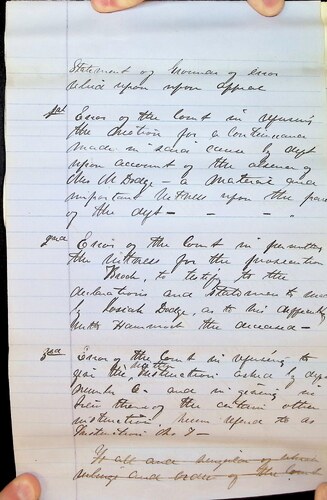 Statement of Grounds of error
relied upon upon appeal
1st Error of the Court in refusing
the motion for a Continuance
made in said cause by deft
upon account of the absence of
Mrs M Dodge – a material and
important witness upon the part
of the deft – – –
2nd Error of the Court in permitting
the witness for the prosecution
Brook, to testify to the
declarations and statements made
by Josiah Dodge, as to his difficulty
with Hammock the deceased –
3rd Error of the Court in refusing to
give the matter instruction asked by deft
Number 6 – and in giving in
lieu thereof the certain other
instruction, herein refered to as
Instruction No 7 –
of all and
rulings and orders of the Court